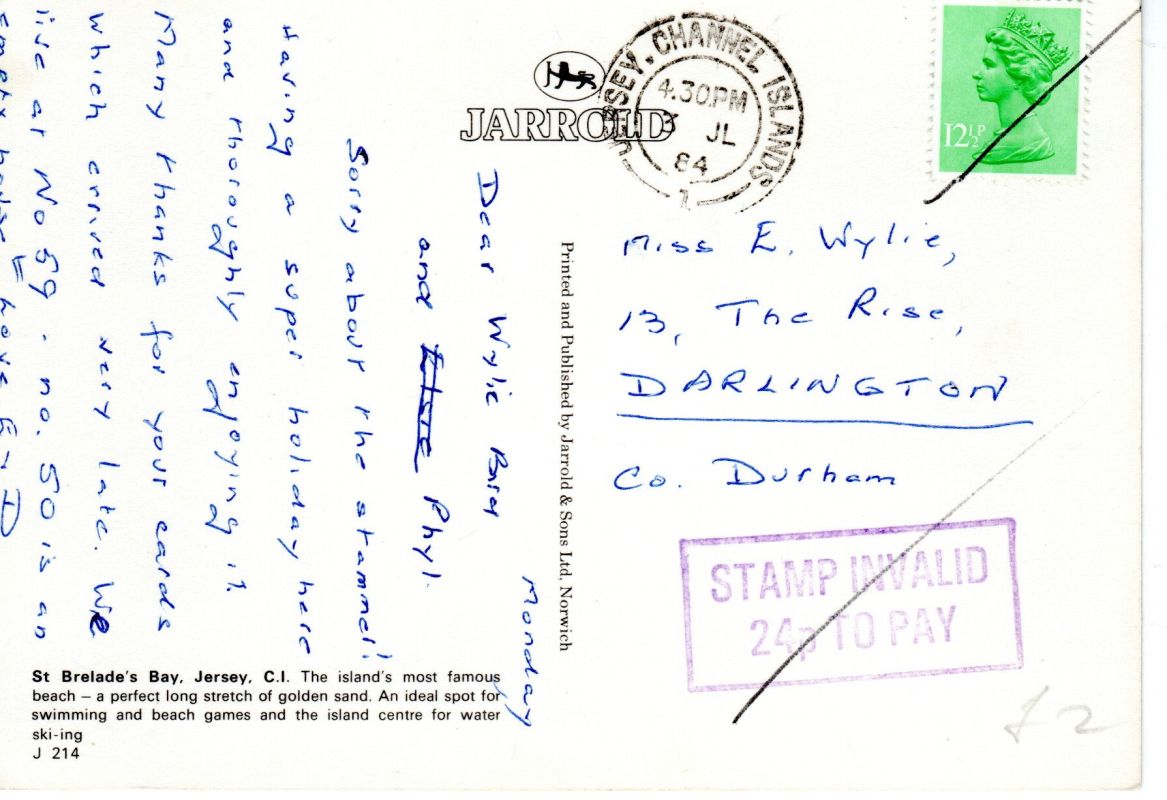 JARROLD
JERSEY. CHANNEL ISLANDS
4.30PM
3 JL
84
1
12½P
Monday
Dear Wylie
and Phyl.
Sorry about the stammer!
Having a super holiday here
and thoroughly enjoying it.
Many thanks for your cards
which arrived very late. We
live at No 59 - no. 50 is an
empty house
Printed and Published by Jarrold & Sons Ltd, Norwich
Miss E. Wylie,
13, The Rise,
DARLINGTON
Co. Durham
STAMP INVALID
24p TO PAY
£2
St Brelade's Bay, Jersey, C.I. The island's most famous
beach – a perfect long stretch of golden sand. An ideal spot for
swimming and beach games and the island centre for water
ski-ing
J 214